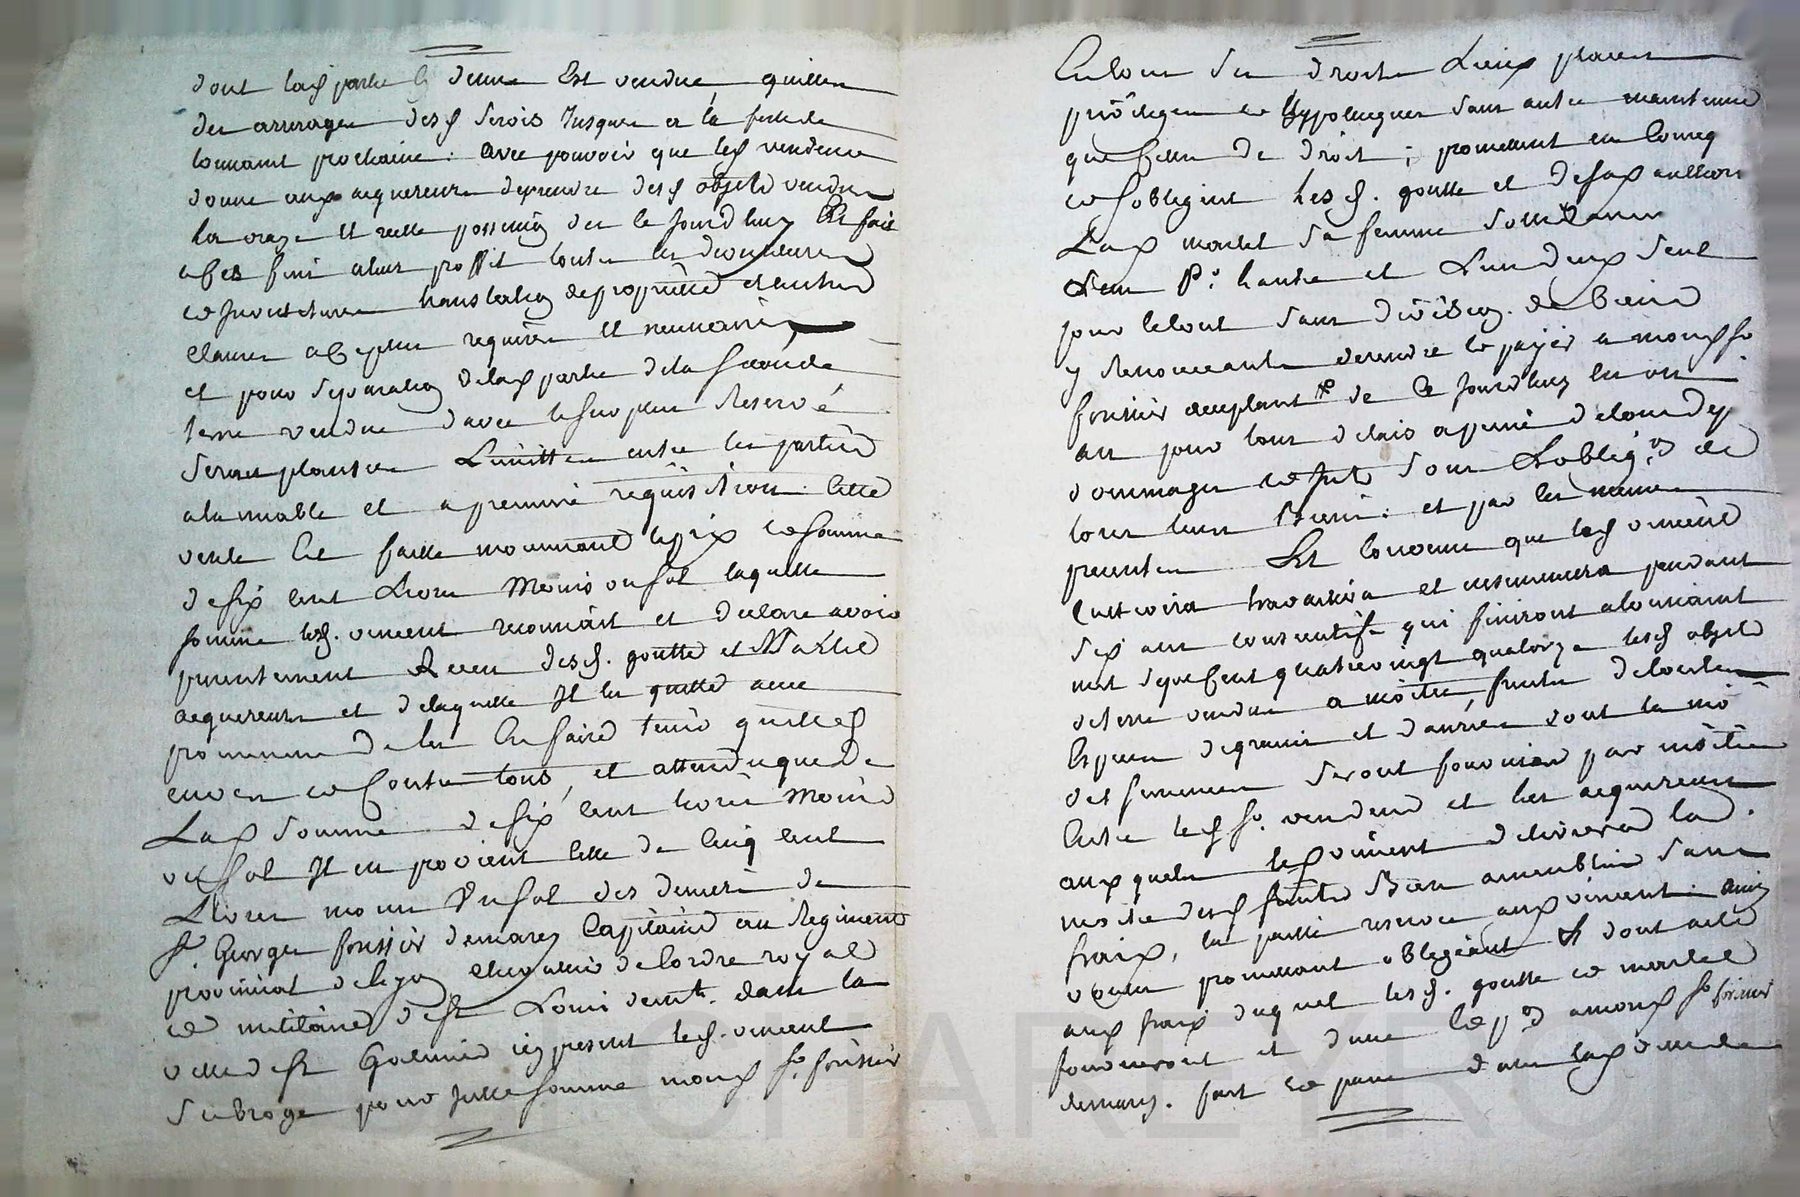 dont lad partie de terre Est vendue quitte
des arrerages desd servis Jusques a la feste de
toussaint prochaine : avec pouvoir que led vendeur
donne aux acquereurs deprendre desd objets vendus
la vraye Et reelle possession des ce Jourdhuy Et fait
a ces fins a leur proffit toutes les
et Investitures translation de propriété et autres
clauses a ce plus requises Et necessaires
et pour separation delad partie de la seconde
terre vendue davec le surplus Reservé
seront plantées Limittes entre les parties
alamiable et a premiere requisition : Cette
vente Est faitte moyenant le prix et somme
de six cent Livres Moins un sol laquelle
somme led. vincent reconnoit et declare avoir
presentement Receu desd. goutte et Martel
acquereurs et delaquelle Il les quitte avec
promesse de les En faire tenir quittes
envers et contre tous, et attendu que de
Lad somme de six cent livres Moins
un sol Il en provient celle de cinq cent
Livres moins Un sol des deniers de
sr. George forissier demarez Capitaine au Regiment
provincial de lyon chevalier de lordre royal
et militaire de st Louis demt. dans la
ville de st Galmier icy present led. vincent
subroge pour Jcelle somme mond sr. forissier
En tous ses droits Lieux places
privileges et hypotheques sans autre maintenue
que celle de droit ; promettent en consequ
et soblegent lesd. goutte et de sad authorité
Lad martel sa femme solidairement
Lun pr. lautre et Lun deux seul
pour letout sans division de biens
y Renonceants derendre et payer a mond sr
forissier acceptant de ce Jourdhuy en un
an pour tous delais a peine de tous dep
dommages et Jnts sous Lobligon de
tous leurs Biens : et par les memes
presentes Est convenu que led vincent
cultivera travaillera et ensemencera pendant
six ans consecutifs qui finiront a la toussaint
mil sept cent quatrevingt quatorze lesd objets
de terre vendus a moitié fruits de toutes
Especes de grains et danrées dont les
des semences seront fournies par moitié
Entre led sr. vendeur et les acquereurs
aux quels led vincent delivrera la d.
moitié desd fruits Bien assemblée sans
fraix, la paille reservée aud vincent. ainsi
voulu promettant obligeant Et dont acte
aux fraix duquel lesd. goutte et martel
fourniront et dune Expon amond sr forissier
demarez. fait et passé dans lad ville de